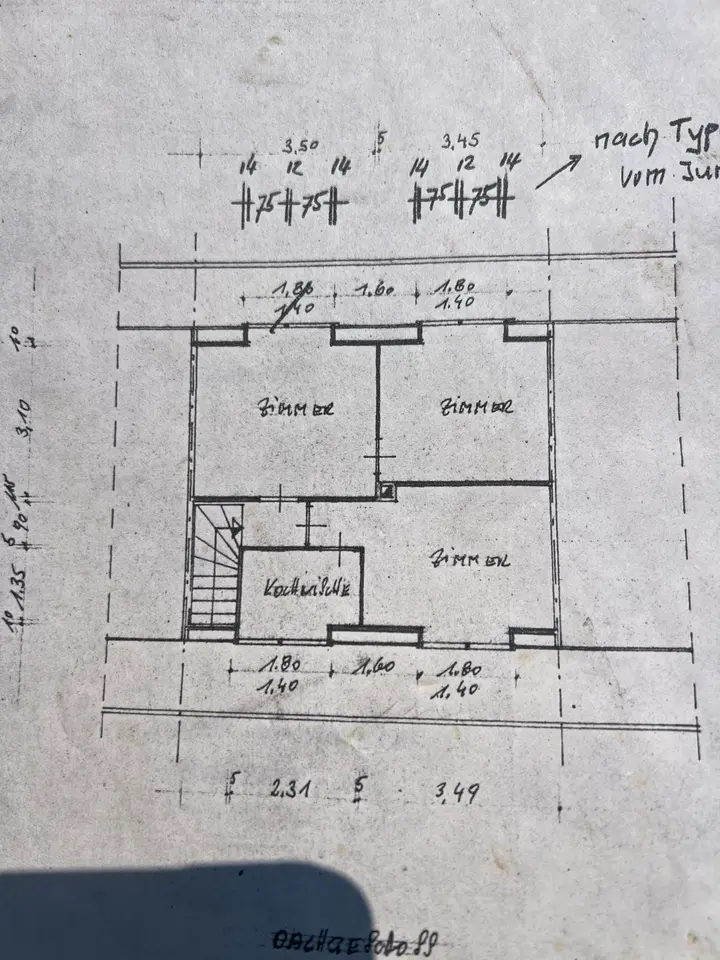 3,50 5 3,45
nach Typ
14 12 14 14 12 14
vom
75 75 75 75
1,80 1,60 1,80
1,40 1.40
10
ZIMMER ZIMMER
3,10
90
5
ZIMMER
1,35
KOCHNISCHE
10
1.80 1,60 1,80
1,40 1,40
5 2,31 5 3,49
DACHGESCHOSS